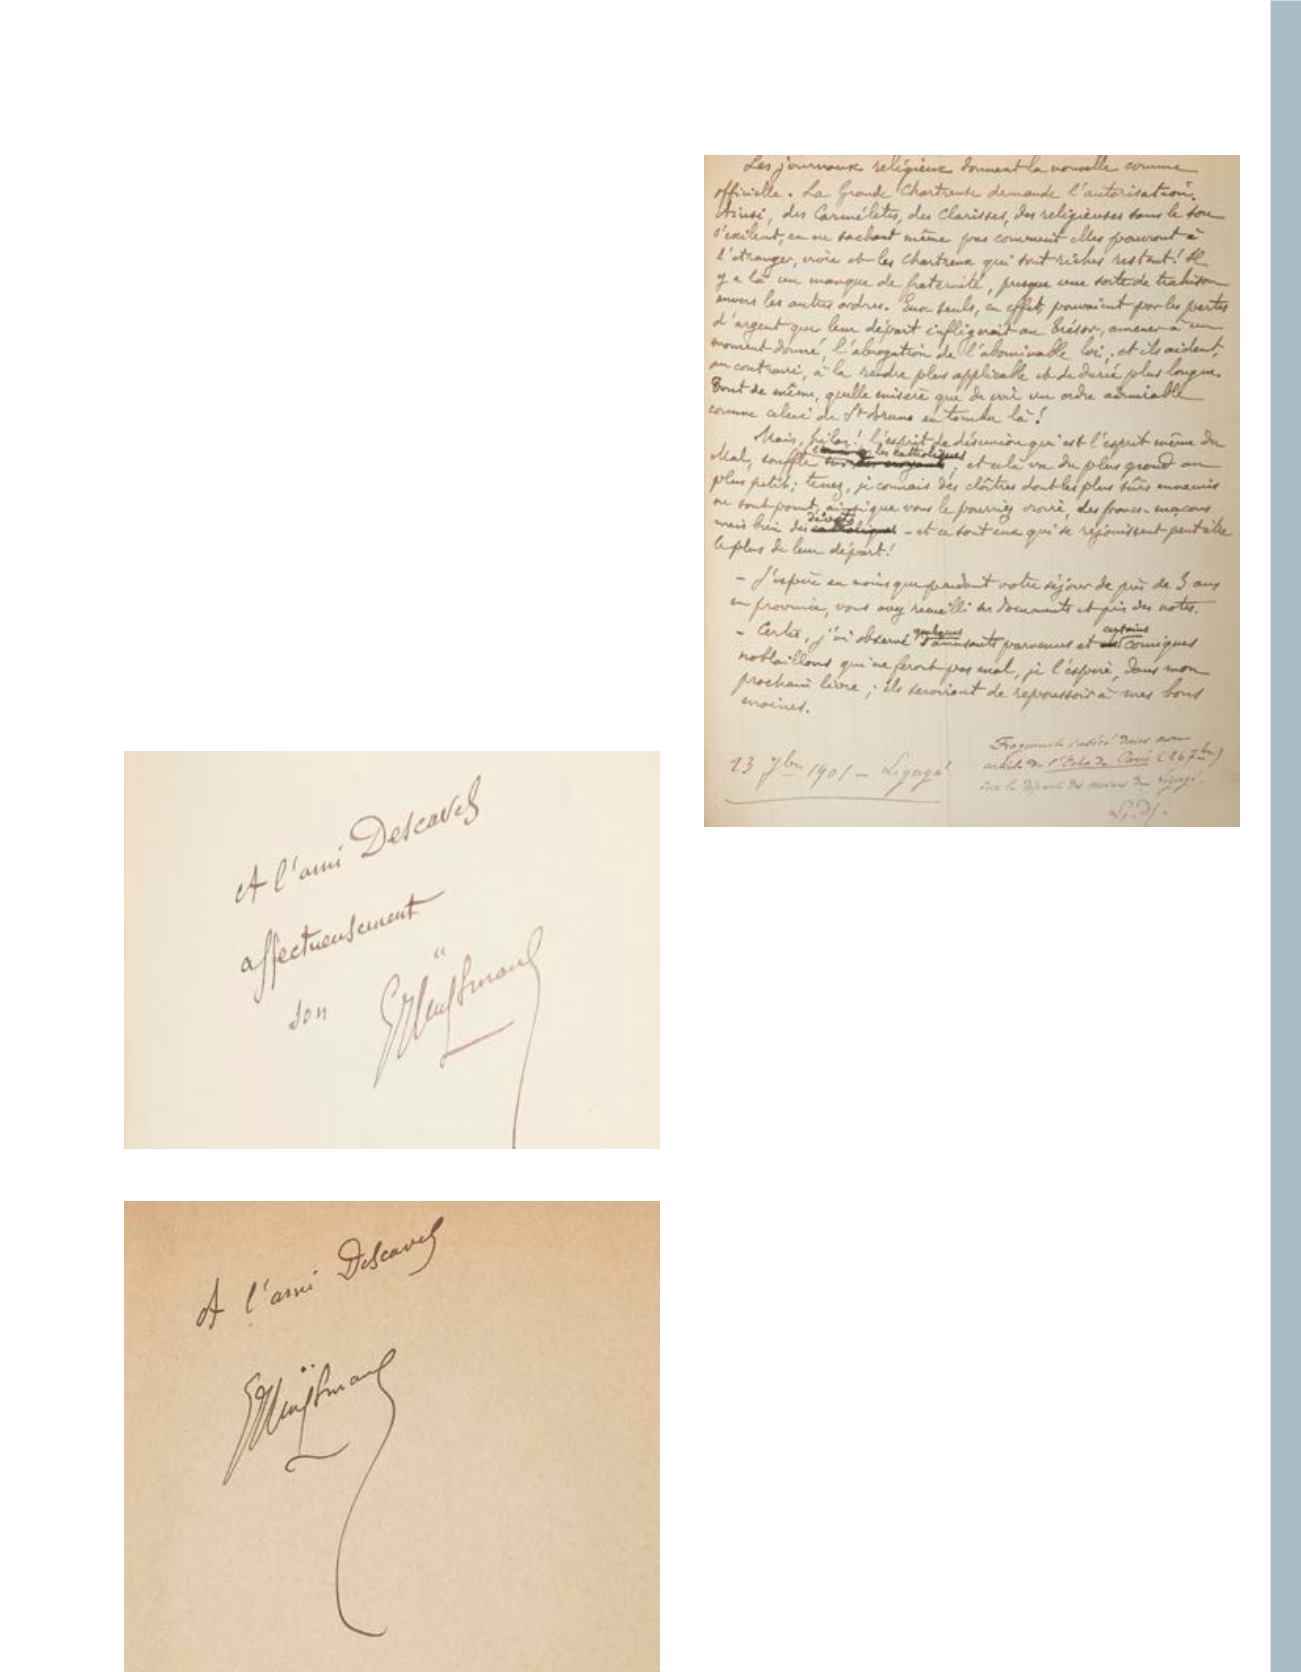 A l'ami Descaves
affectueusement
son
GHuÿsmans
A l'ami Descaves
GHuÿsmans
Les journaux religieux donnent la nouvelle comme
officielle. La Grande Chartreuse demande l'autorisation.
Ainsi, des Carmélites, des Clarisses, des religieuses sans le sou
s'exilent, en ne sachant même pas comment elles pourront à
l'étranger, vivre et les Chartreux qui sont riches restent! Il
y a là un manque de fraternité, presque une sorte de trahison
envers les autres ordres. Eux seuls, en effet, pouvaient par les pertes
d'argent que leur départ infligerait au Trésor, amener à un
moment donné, l'abrogation de l'abominable loi, et ils aident,
au contraire, à la rendre plus applicable et de durée plus longue.
Tout de même, quelle misère que de voir un ordre admirable
comme celui de St Bruno en tomber là!
Mais, hélas! l'esprit de désunion qui est l'esprit même du
les catholiques
Mal, souffle ; et cela va du plus grand au
plus petit; tenez, je connais des cloîtres dont les plus sûrs ennemis
ne sont point, ainsi que vous le pourriez croire, des francs-maçons
dévots
mais bien des catholiques - et ce sont eux qui se réjouissent peut-être
le plus de leur départ!
- J'espère au moins que pendant votre séjour de près de 3 ans
en province, vous avez recueilli des documents et pris des notes.
quelques certains
- Certes, j'ai observé d'amusants parvenus et comiques
noblaillons qui ne feront pas mal, je l'espère, dans mon
prochain livre; ils serviront de repoussoir à mes bons
moines.
23 7bre 1901 - Ligugé.
Fragments insérés dans mon
article de l'Echo de Paris (26 7bre)
sur le départ des moines de Ligugé.